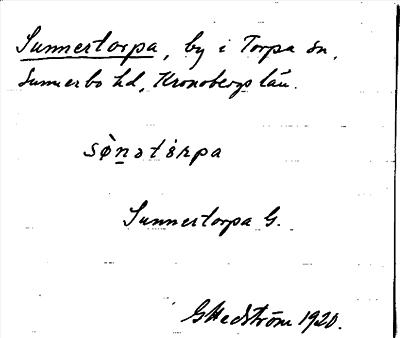 Sunnertorpa, by i Torpa sn,
Sunnerbo hd, Kronobergs län.
Sunnertorpa G.
GHedström 1920.